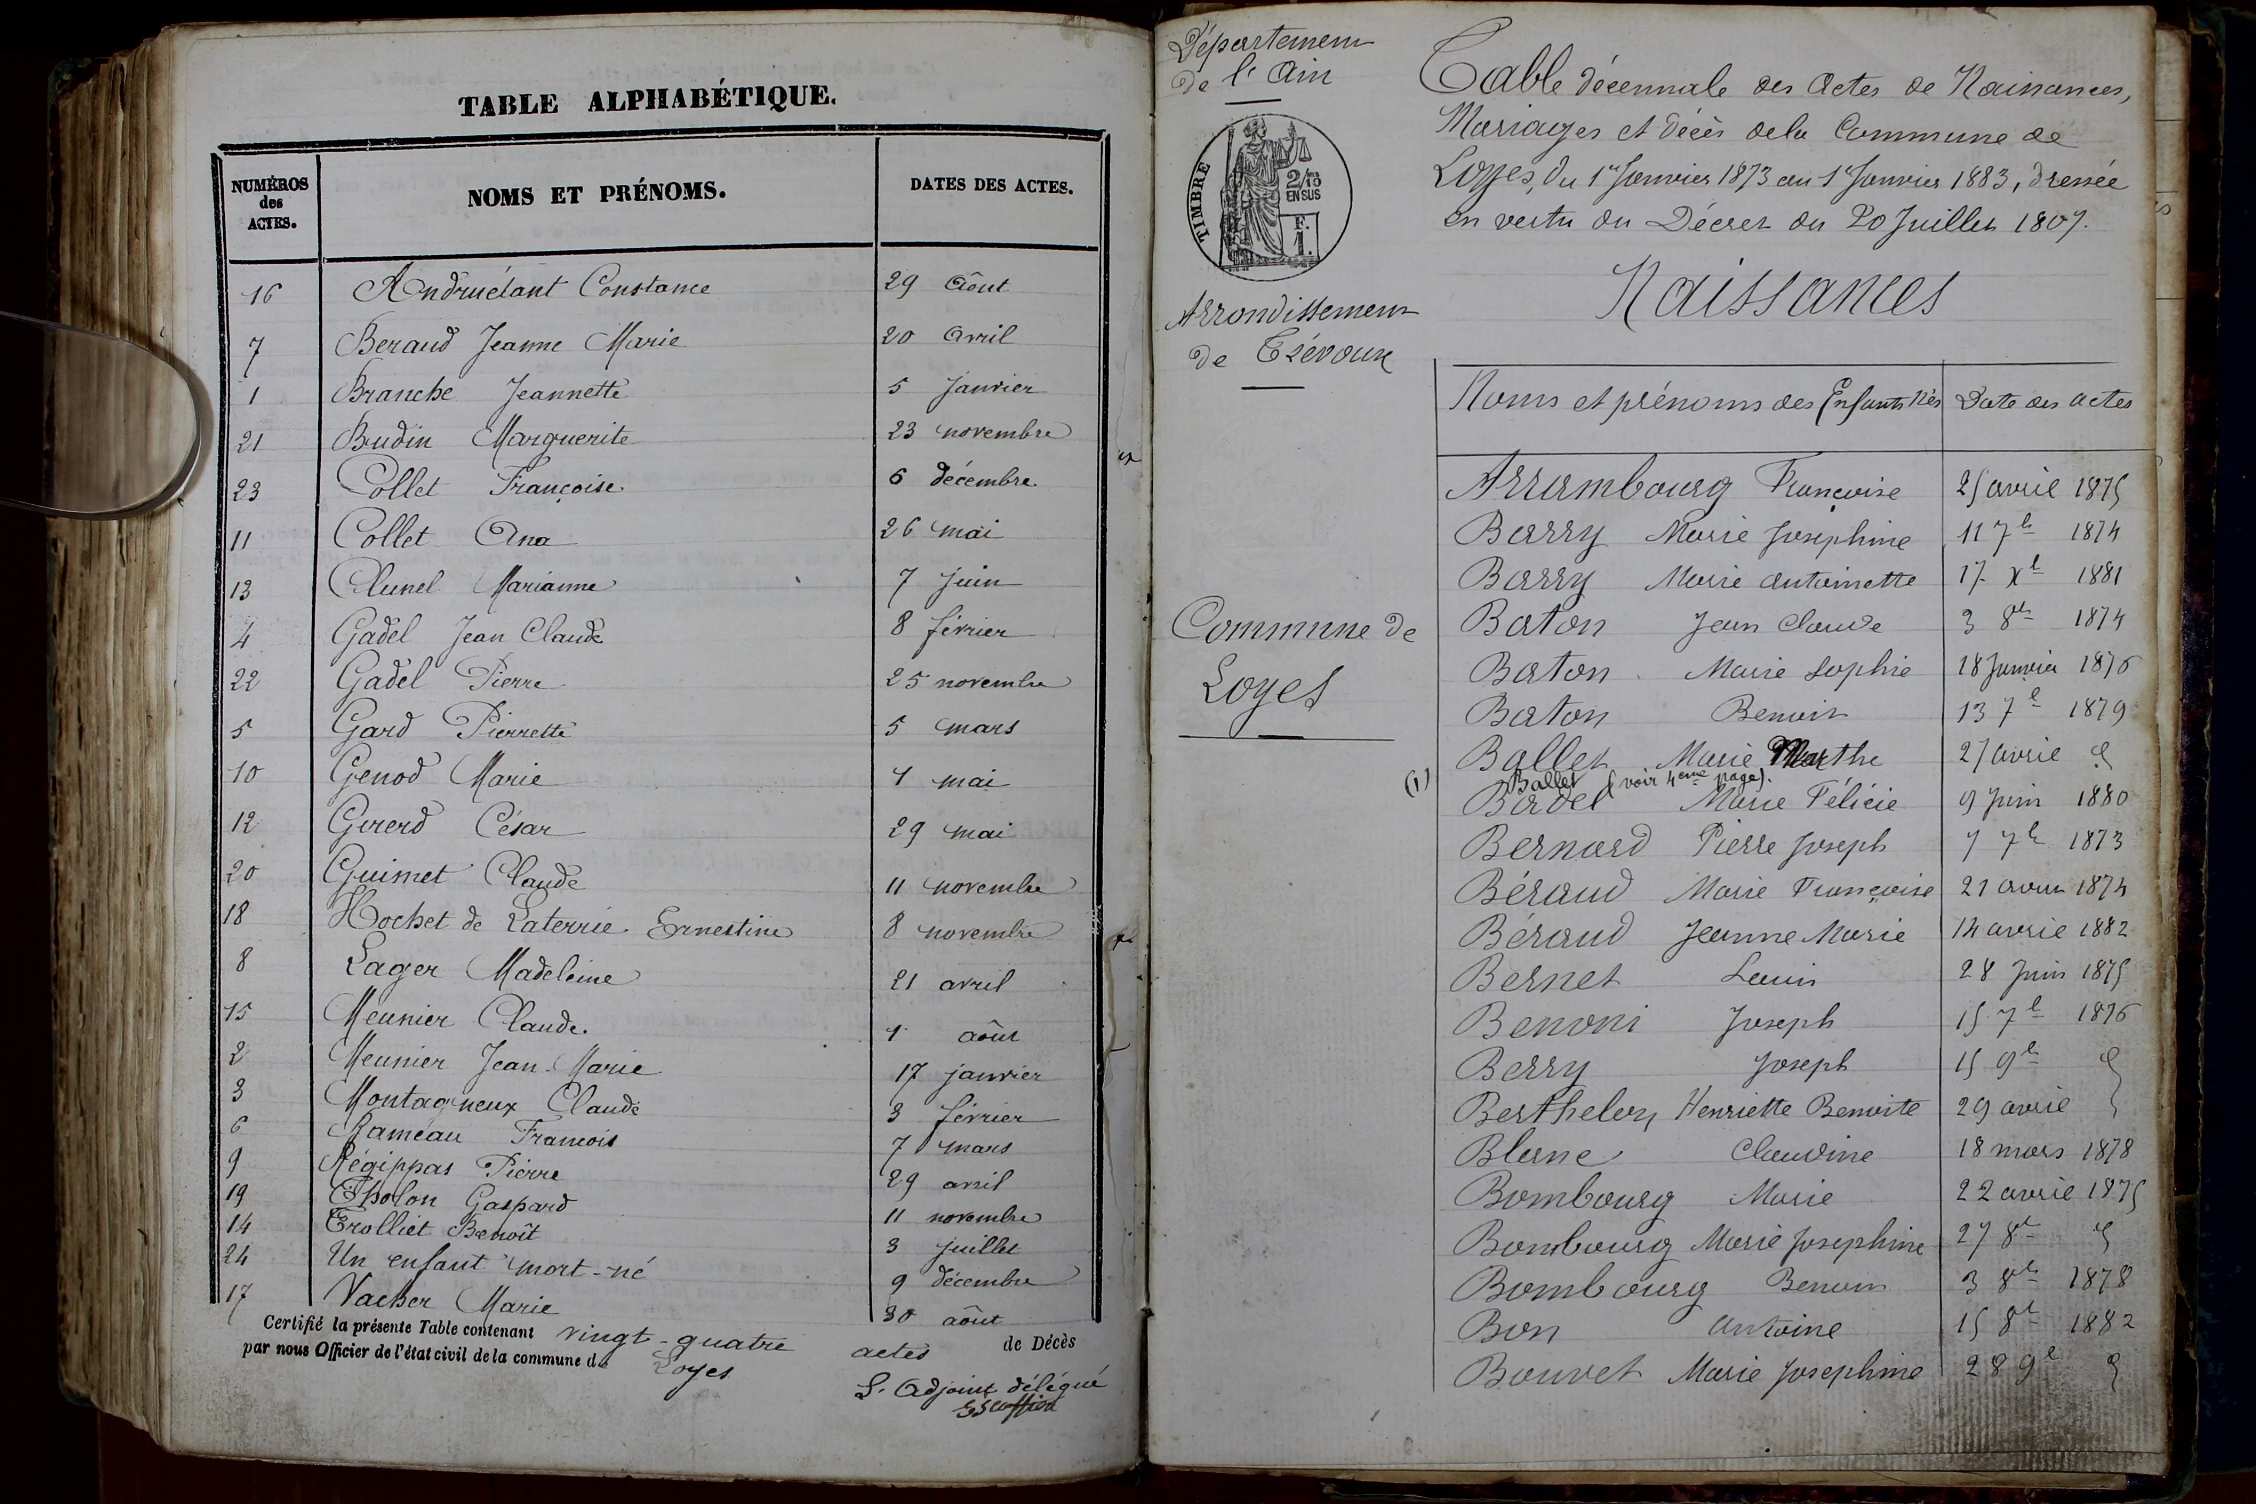 TABLE ALPHABÉTIQUE.
NUMÉROS des ACTES. NOMS ET PRÉNOMS. DATES DES ACTES.
16 Andruétant Constance 29 Août
7 Beraud Jeanne Marie 20 Avril
1 Branche Jeannette 5 Janvier
21 Budin Marguerite 23 novembre
23 Collet Françoise 6 décembre
11 Collet Ana 26 mai
13 Clunel Marianne 7 Juin
4 Gadel Jean Claude 8 février
22 Gadel Pierre 25 novembre
5 Gard Pierrette 5 mars
10 Genod Marie 1 mai
12 Gererd César 29 mai
20 Guimet Claude 11 novembre
18 Hochet de Laterrie Ernestine 8 novembre
8 Lager Madeleine 21 avril
15 Meunier Claude. 1 août
2 Meunier Jean-Marie 17 janvier
3 Montagneux Claude 3 février
6 Rameau Francois 7 mars
9 Régippas Pierre 29 avril
19 Tholon Gaspard 11 novembre
14 Trolliet Benoît 3 juillet
24 Un enfant mort-né 9 décembre
17 Vacher Marie 30 août
Certifié la présente Table contenant vingt-quatre actes de Décès
par nous Officier de l'état civil de la commune de Loyes
L'Adjoint délégué
Département
de l'Ain
TIMBRE
2/10 EN SUS
F. 1.
Arrondissement
de Trévoux
Commune de
Loyes
Table décennale des Actes de Naissances,
Mariages et décès de la Commune de
Loyes, du 1er Janvier 1873 au 1er Janvier 1883, dressée
en vertu du Décret du 20 Juillet 1807.
Naissances
Noms et prénoms des Enfants nés Date des actes
Arrambourg Françoise 25 avril 1875
Barry Marie Josephine 11 7b 1874
Barry Marie Antoinette 17 Xb 1881
Baton Jean Claude 3 8b 1874
Baton Marie Sophie 18 Janvier 1876
Baton Benoit 13 7b 1879
Ballet Marie Marthe 27 avril
(1) Ballet (voir 4eme page).
Bardel Marie Félicie 9 Juin 1880
Bernard Pierre Joseph 7 7b 1873
Béraud Marie Françoise 21 avril 1874
Béraud Jeanne Marie 14 avril 1882
Bernet Louis 28 Juin 1875
Benoni Joseph 15 7b 1876
Berry Joseph 15 9b
Berthelon Henriette Benoite 29 avril
Blanc Claudine 18 mars 1878
Bombourg Marie 22 avril 1875
Bombourg Marie Josephine 27 8b
Bombourg Benoit 3 8b 1878
Bon Antoine 15 8b 1882
Bouvet Marie Josephine 28 9b